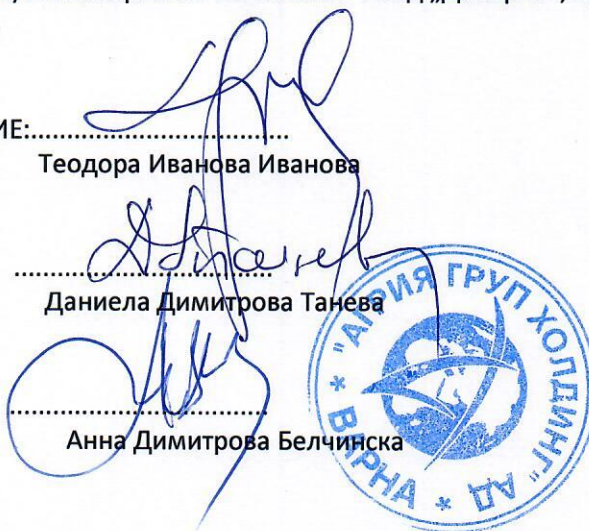 ИЕ:....................................
Теодора Иванова Иванова
....................................
Даниела Димитрова Танева
....................................
Анна Димитрова Белчинска
"АГРИЯ ГРУП ХОЛДИНГ" АД
* ВАРНА *